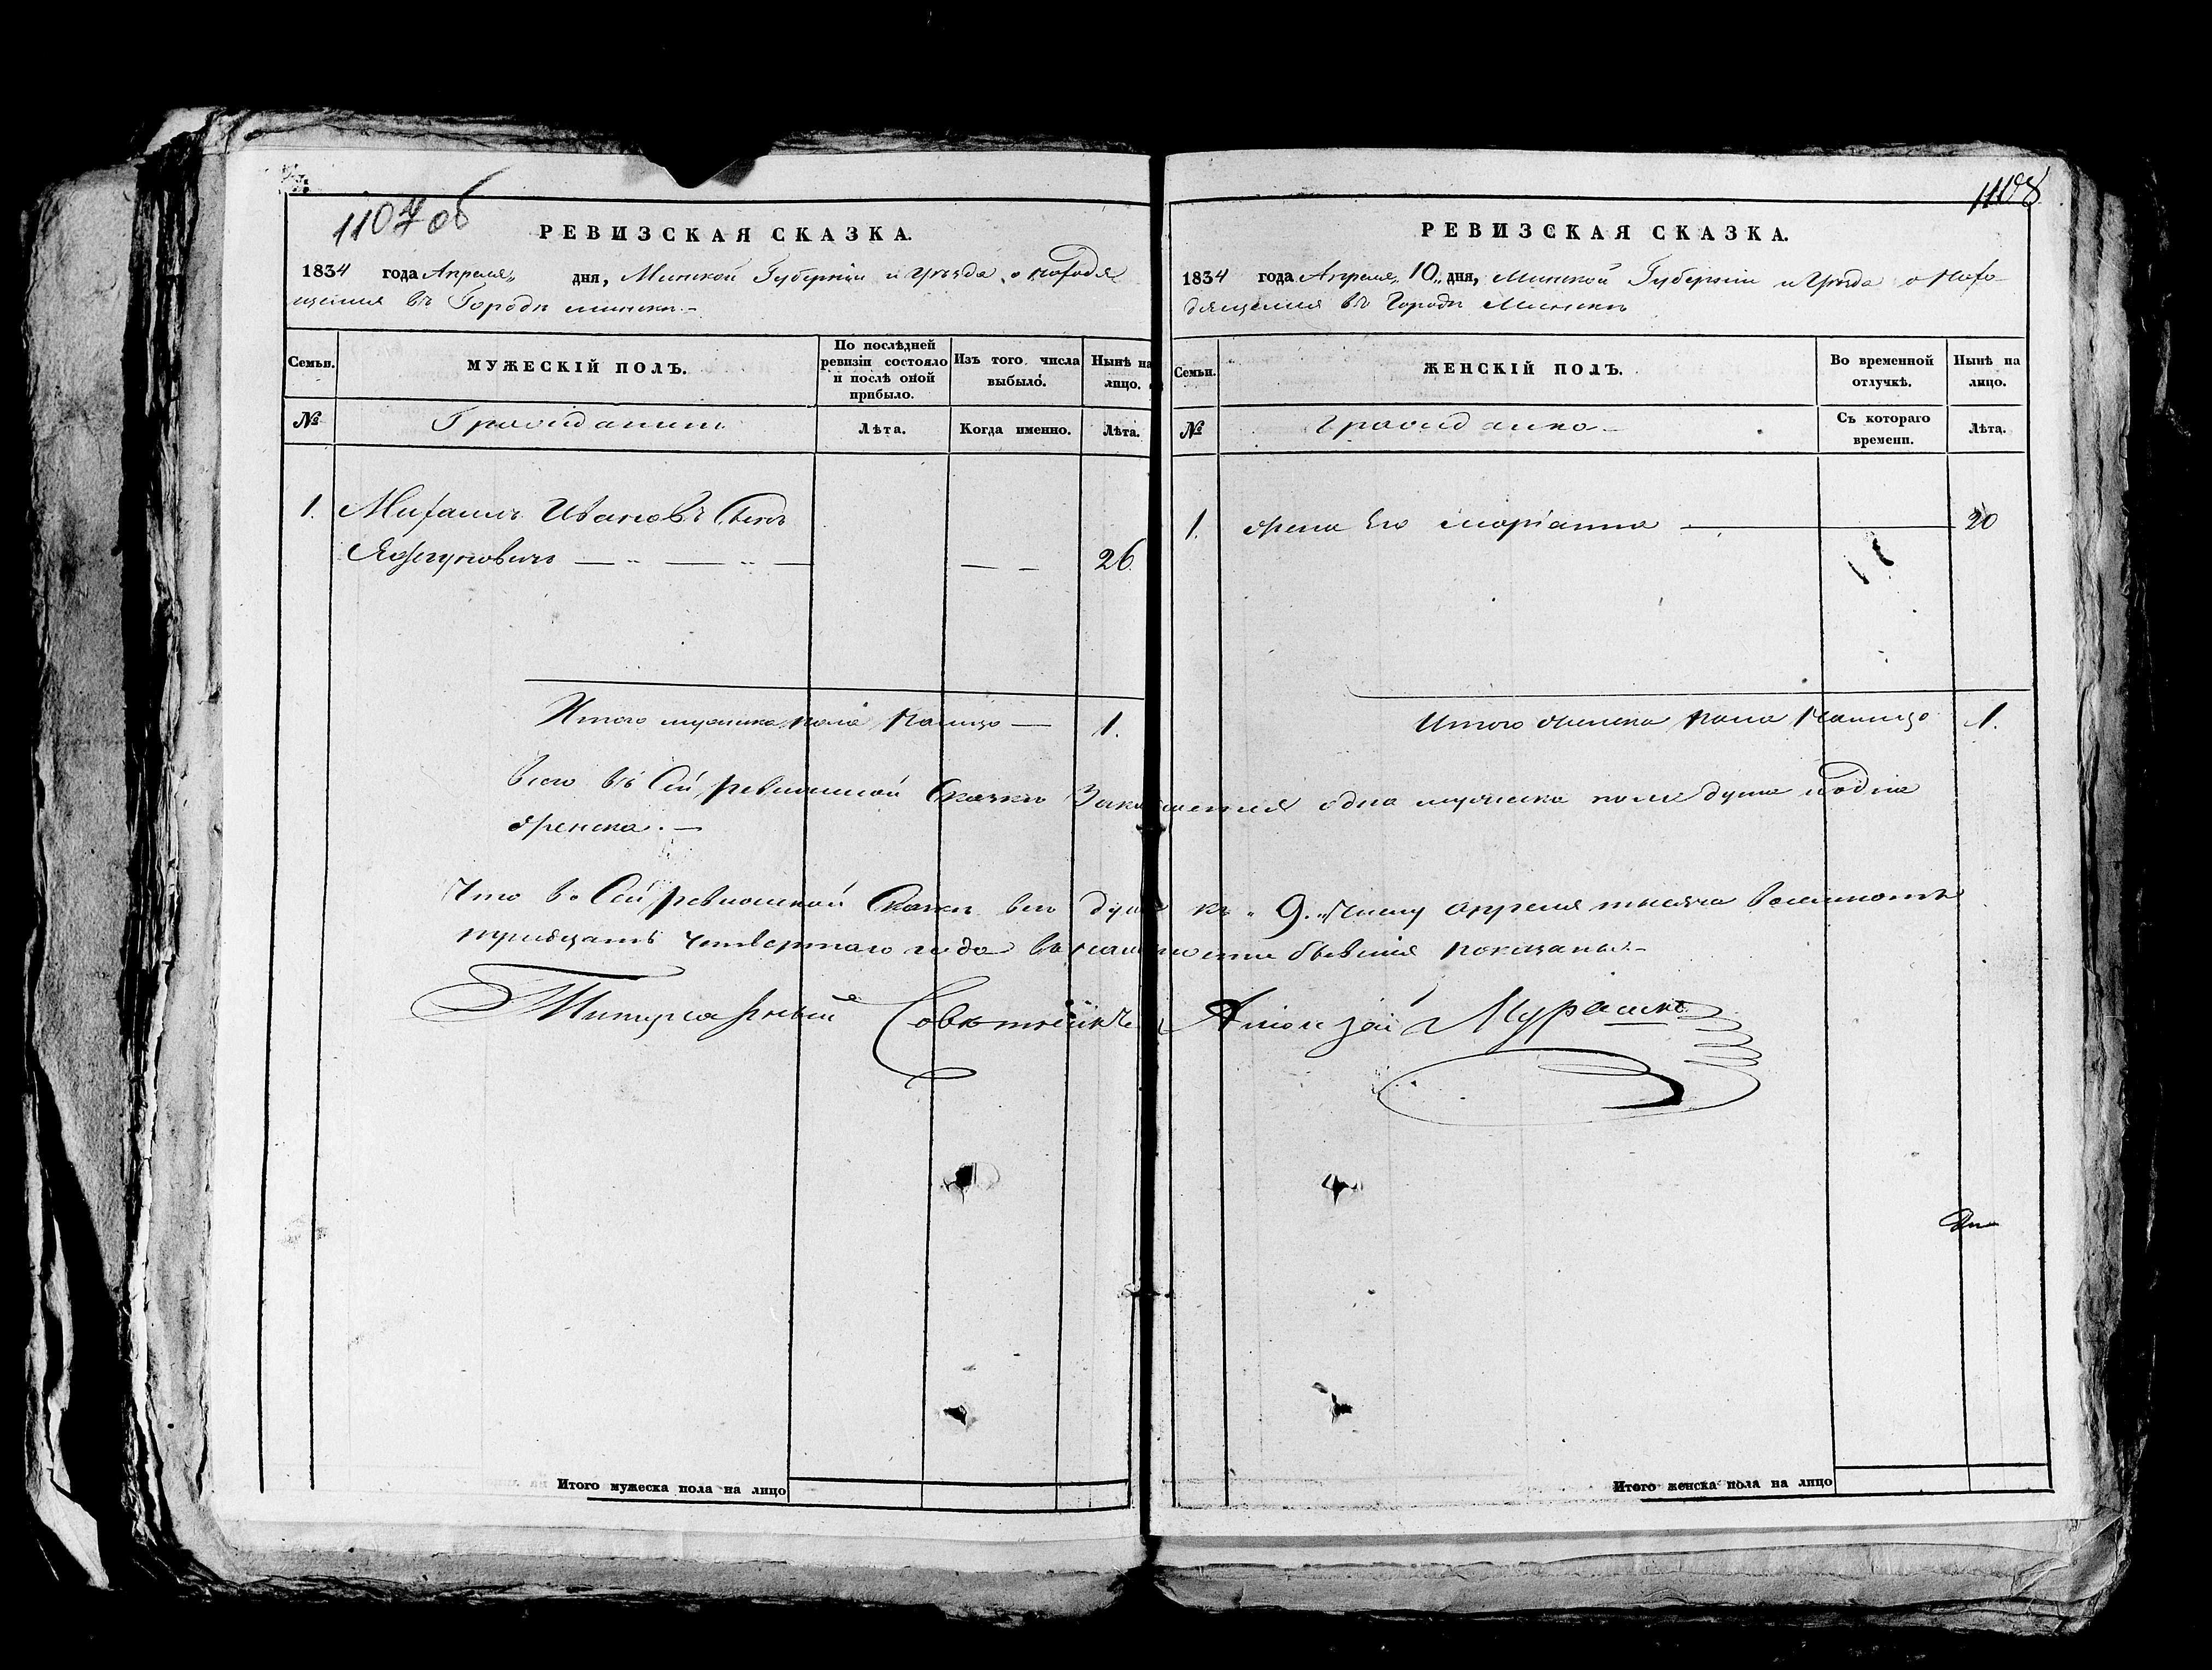 1107 об
РЕВИЗСКАЯ СКАЗКА.
1834 года Апреля дня, Минской Губерніи и Уѣзда о находя
щемся въ Городѣ Минскѣ.
Семьи.
МУЖЕСКІЙ ПОЛЪ.
По послѣдней ревизіи состояло и послѣ оной прибыло.
Изъ того числа выбыло.
Нынѣ на лицо.
№
Гражданинъ
Лѣта.
Когда именно.
Лѣта.
1. Михаилъ Ивановъ Сынъ
26.
Итого мужеска пола налицо — 1.
1108
РЕВИЗСКАЯ СКАЗКА.
1834 года Апреля 10 дня, Минской Губерніи и Уѣзда о нахо-
дящемся въ Городѣ Минскѣ
Семьи.
ЖЕНСКІЙ ПОЛЪ.
Во временной отлучкѣ.
Нынѣ на лицо.
№
Гражданка
Съ котораго времени.
Лѣта.
1. жена Его Маріанна — 20
Итого женска пола налицо 1.
Всего въ Сей ревизской Сказкѣ одна мужеска пола душа и одна
женска.
Что въ Сей ревизской Сказкѣ все души къ 9 числу апреля тысяча восемсотъ
тридцать четвертаго года въ наличности бывшія показаны.
Титулярный Совѣтникъ Мурашко
Итого мужеска пола на лицо
Итого женска пола на лицо